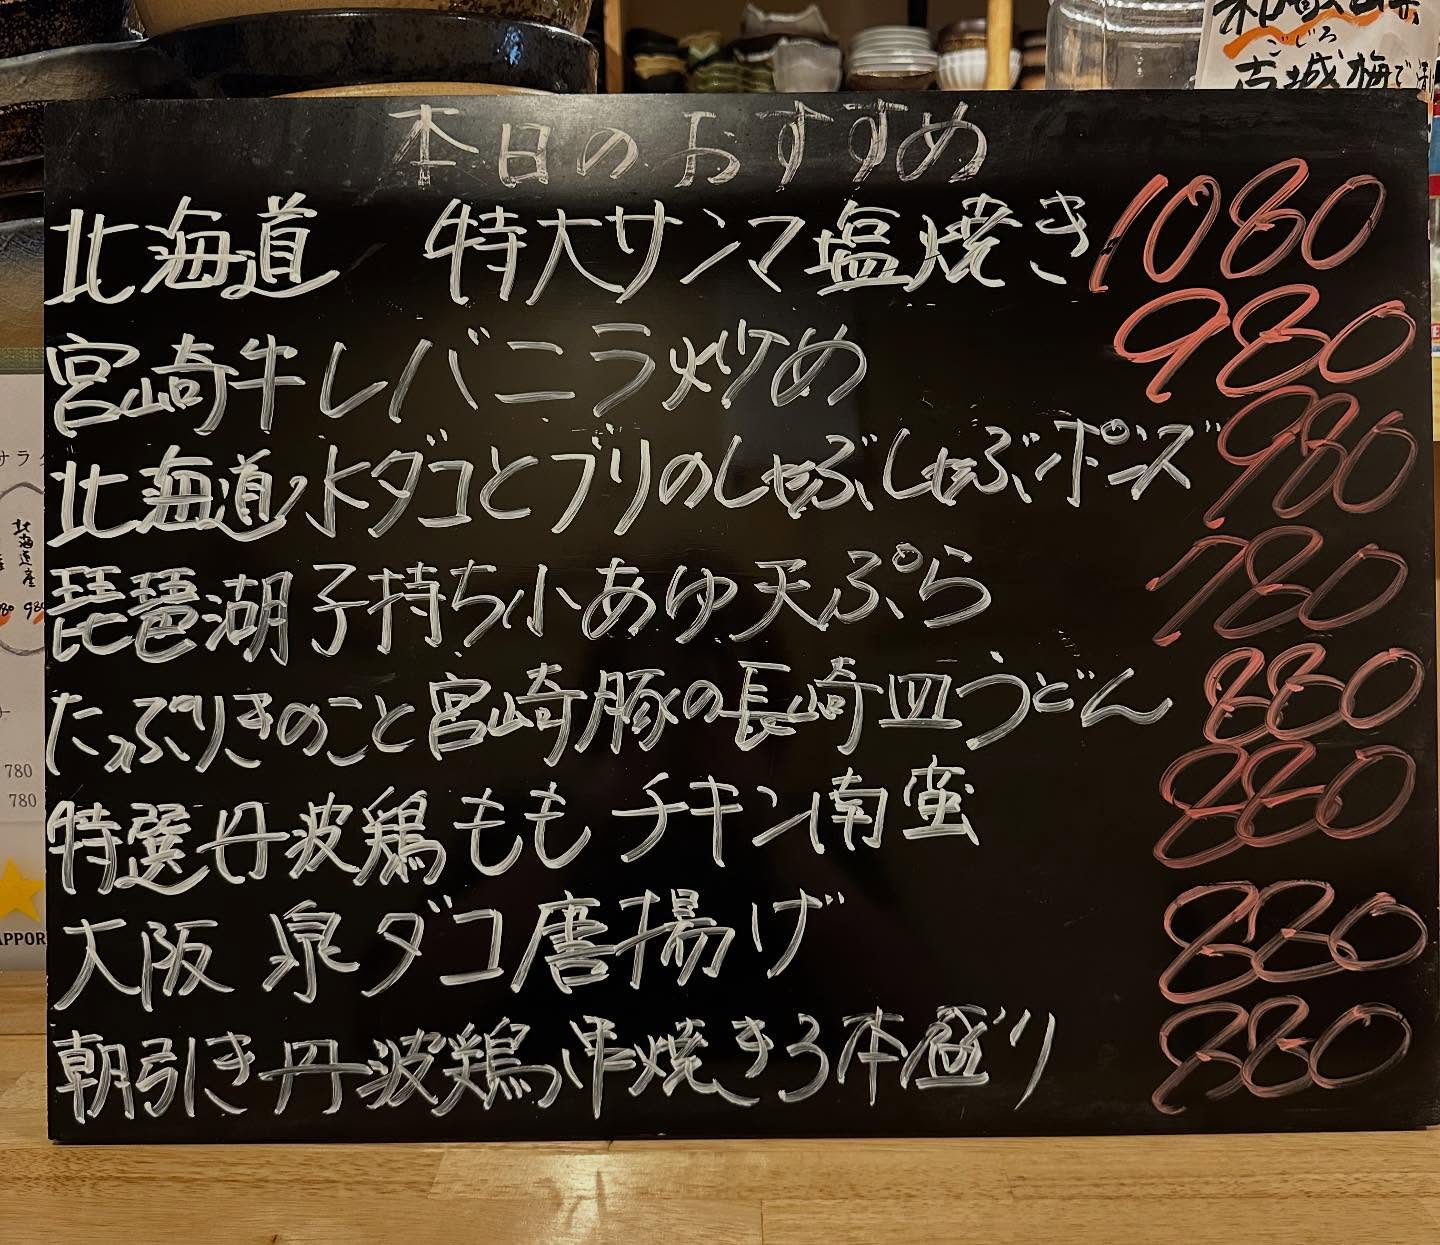 本日のおすすめ
北海道 特大サンマ塩焼き 1080
宮崎牛レバニラ炒め 980
北海道水ダコとブリのしゃぶしゃぶポンズ 980
琵琶湖子持ち小あゆ天ぷら 780
たっぷりきのこと宮崎豚の長崎皿うどん 880
特選丹波鶏ももチキン南蛮 880
大阪 泉ダコ唐揚げ 880
朝引き丹波鶏串焼き3本盛り 880
こじろ
古城梅で
サラ
北海道産
980
780
780